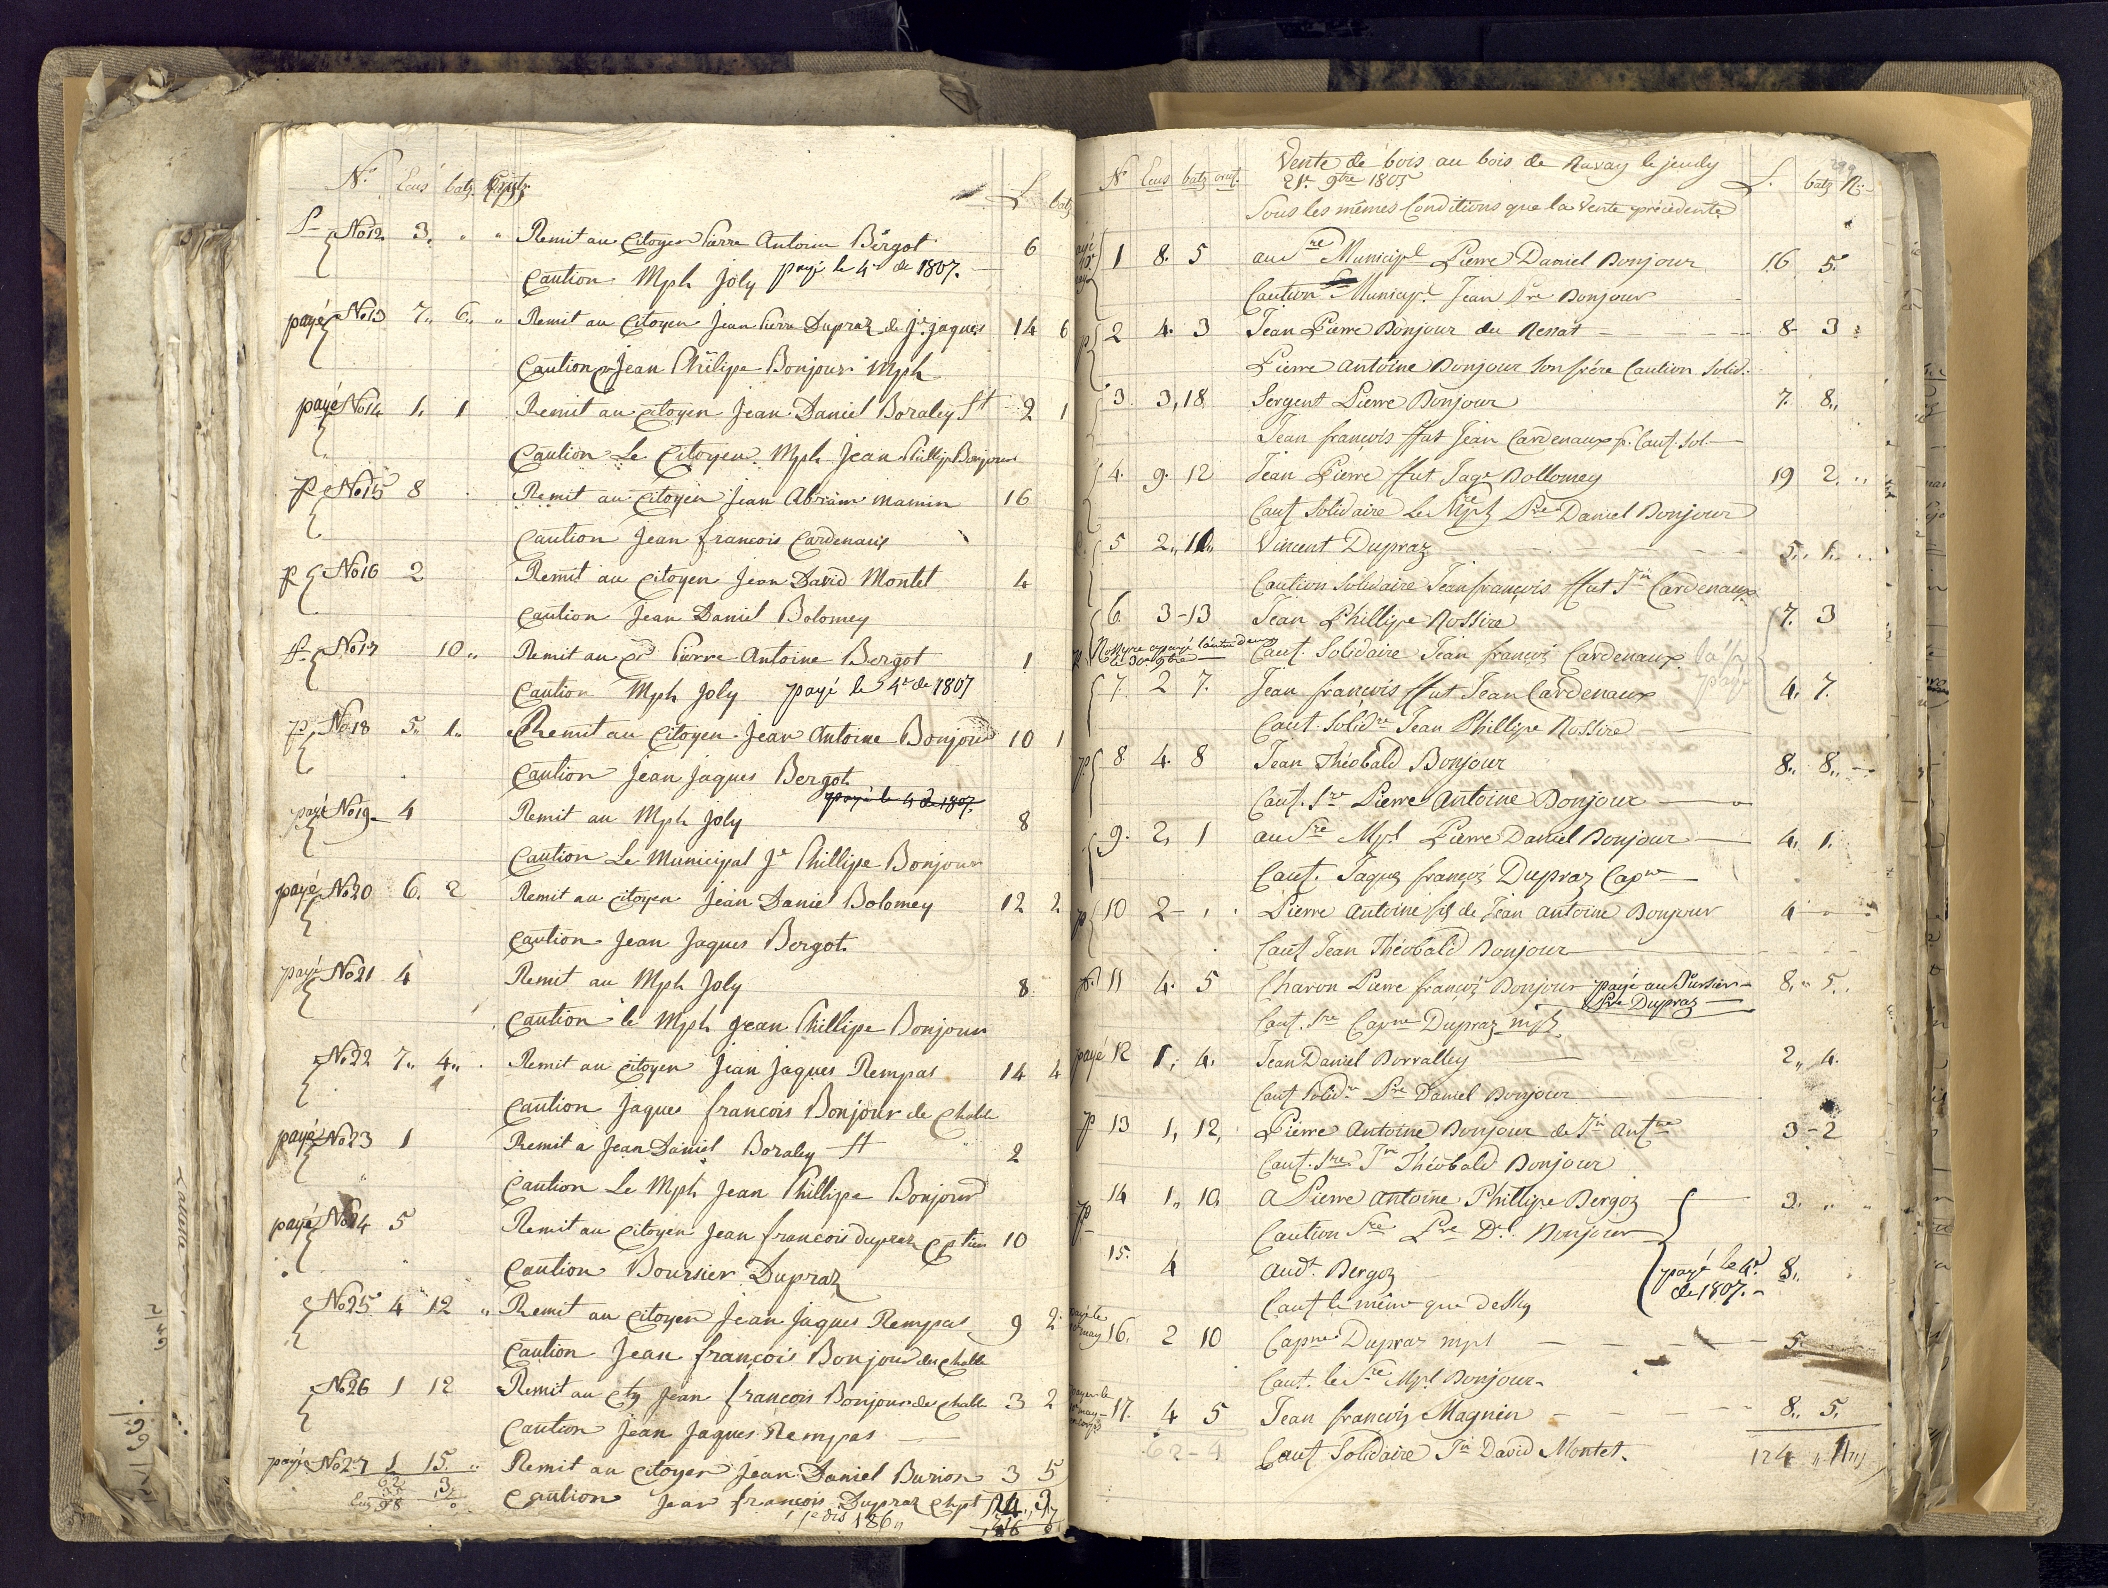 No Ecus batz L batz
No 12 3 " " Remit au Citoyen Pierre Antoine Bergot 6
Caution Mph Joly payé le 4r de 1807.
payé No 13 7 " 6 " " Remit au Citoyen Jean Pierre Dupraz de Jn Jaques 14 6
Caution Jean Philipe Bonjour Mph
payé No 14 1 " 1 Remit au Citoyen Jean Daniel Boraley St 2 1
Caution Le Citoyen Mph Jean Phillipe Bonjour
p No 15 8 Remit au Citoyen Jean Abram Mamin 16
Caution Jean francois Cardenaux
p No 16 2 Remit au Citoyen Jean David Montet 4
Caution Jean Daniel Bolomey
No 17 10 " Remit au Pierre Antoine Bergot 1
Caution Mph Joly payé le 4r de 1807
p No 18 5 " 1 " Remit au Citoyen Jean Antoine Bonjour 10 1
Caution Jean Jaques Bergot
payé le 4 de 1807.
payé No 19 4 Remit au Mph Joly 8
Caution Le Municipal Jn Phillipe Bonjour
payé No 20 6. 2 Remit au Citoyen Jean Daniel Bolomey 12 2
Caution Jean Jaques Bergot.
payé No 21 4 Remit au Mph Joly 8
Caution le Mph Jean Phillipe Bonjour
No 22 7 " 4 " Remit au Citoyen Jean Jaques Rempas 14 4
Caution Jaques francois Bonjour de Chable
payé No 23 1 Remit a Jean Daniel Boraley St 2
Caution Le Mph Jean Phillipe Bonjour
payé No 24 5 Remit au Citoyen Jean francois dupraz 10
Caution Boursier Dupraz
No 25 4 12 " Remit au Citoyen Jean Jaques Rempas 9 2
Caution Jean francois Bonjour du Chable
No 26 1 12 Remit au Jean francois Bonjour de Chable 3 2
Caution Jean Jaques Rempas
payé No 27 1 15 " Remit au Citoyen Jean Daniel Burion 3 5
Caution Jean francois Dupraz
Vente de bois au bois de Ravay le jeudy
No Ecus batz cruf. 21e 9bre 1805 L. batz R
Sous les mêmes Conditions que la Vente précédente
1 8. 5 au Sre Municipl Pierre Daniel Bonjour 16 5.
Caution Municipl Jean Pre Bonjour
p 2 4. 3 Jean Pierre Bonjour du Renat 8 - 3
Pierre Antoine Bonjour son frére Caution Solid.
3 3, 18 Sergent Pierre Bonjour 7. 8 "
Jean françois ffut Jean Cardenaux Caut. Sol.
4. 9. 12 Jean Pierre ffut Jaqs Bollomey 19 2.
Caut Solidaire Le Pre Daniel Bonjour
5 2 " Vincent Dupraz 5 " 1 "
Caution Solidaire Jeanfrançois ffut Jn Cardenaux
6. 3 - 13 Jean Phillipe Rossire 7. 3
Caut. Solidaire Jean françois Cardenaux
7. 2 7. Jean françois ffut Jean Cardenaux 4. 7.
Caut. Solidre Jean Phillipe Rossire
p 8. 4. 8 Jean Théobald Bonjour 8 " 8 "
Caut. Sre Pierre Antoine Bonjour
9. 2, 1 au Sre Mpl Pierre Daniel Bonjour 4. 1.
Caut. Jaques françois Dupraz Capne
p 10 2 - Pierre Antoine fils de Jean antoine Bonjour 4
Caut Jean Théobald Bonjour
p. 11 4. 5 Charon Pierre françois Bonjour payé au Bursier 8. " 5.
Pre Dupraz
Caut. Sre Capne Dupraz mpl
payé 12 1, 4. Jean Daniel Borralley 2 " 4.
Caut Solidre Pre Daniel Bonjour
p 13 1, 12, Pierre Antoine Bonjour de Jn Antne 3 - 2
Caut. Sre Jn Théobald Bonjour
p 14 1 " 10, A Pierre Antoine Phillipe Bergoz 3. " "
Caution Sre Pre Dl. Bonjour
15. 4 Audt Bergoz payé le 4r. 8 "
de 1807.
Caut le même que dessus
payé le may 16. 2 10 Capne Dupraz mpl 5.
Caut. le Sre Mpl Bonjour
17. 4 5 Jean françois Magnin 8 " 5.
62 - 4 Caut Solidaire Jn David Montet. 124